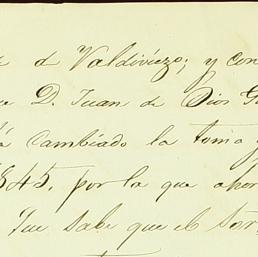 d Valdiviezo; y con
D. Juan de Dios G
á cambiado la toma y
845, por la que ahor
Tue sabe que el tor